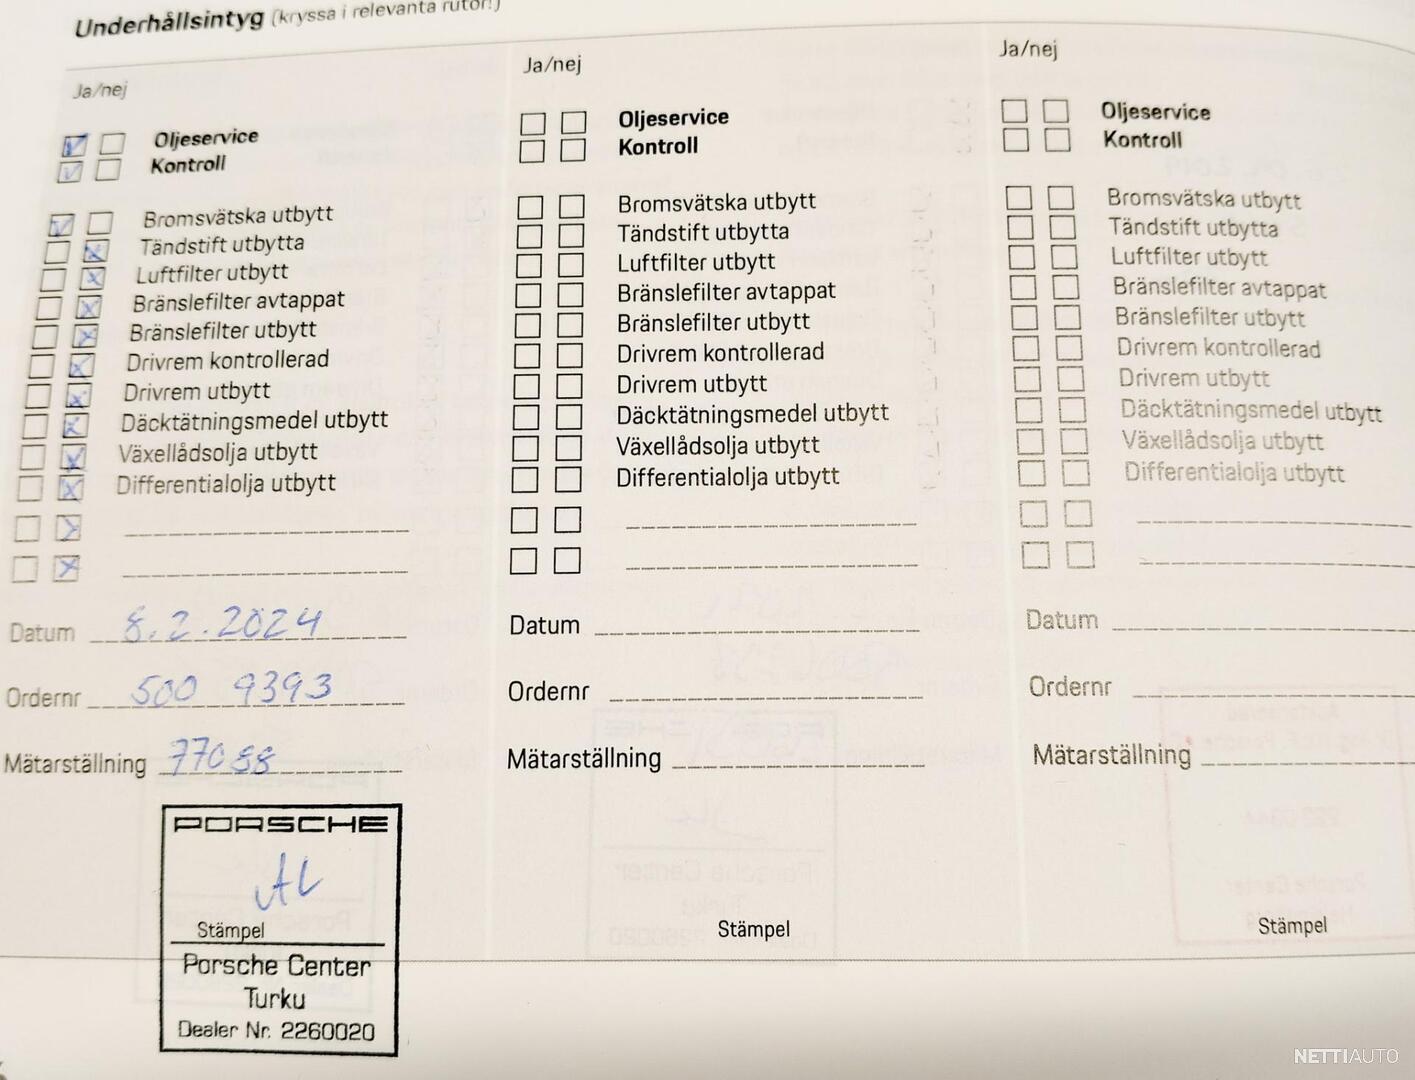 Underhållsintyg (kryssa i relevanta rutor!)
Ja/nej
Oljeservice
Kontroll
Bromsvätska utbytt
Tändstift utbytta
Luftfilter utbytt
Bränslefilter avtappat
Bränslefilter utbytt
Drivrem kontrollerad
Drivrem utbytt
Däcktätningsmedel utbytt
Växellådsolja utbytt
Differentialolja utbytt
Datum 8.2.2024
Ordernr 500 9393
Mätarställning 77088
PORSCHE
AL
Stämpel
Porsche Center
Turku
Dealer Nr. 2260020
Ja/nej
Oljeservice
Kontroll
Bromsvätska utbytt
Tändstift utbytta
Luftfilter utbytt
Bränslefilter avtappat
Bränslefilter utbytt
Drivrem kontrollerad
Drivrem utbytt
Däcktätningsmedel utbytt
Växellådsolja utbytt
Differentialolja utbytt
Datum
Ordernr
Mätarställning
Stämpel
Ja/nej
Oljeservice
Kontroll
Bromsvätska utbytt
Tändstift utbytta
Luftfilter utbytt
Bränslefilter avtappat
Bränslefilter utbytt
Drivrem kontrollerad
Drivrem utbytt
Däcktätningsmedel utbytt
Växellådsolja utbytt
Differentialolja utbytt
Datum
Ordernr
Mätarställning
Stämpel
NETTIAUTO